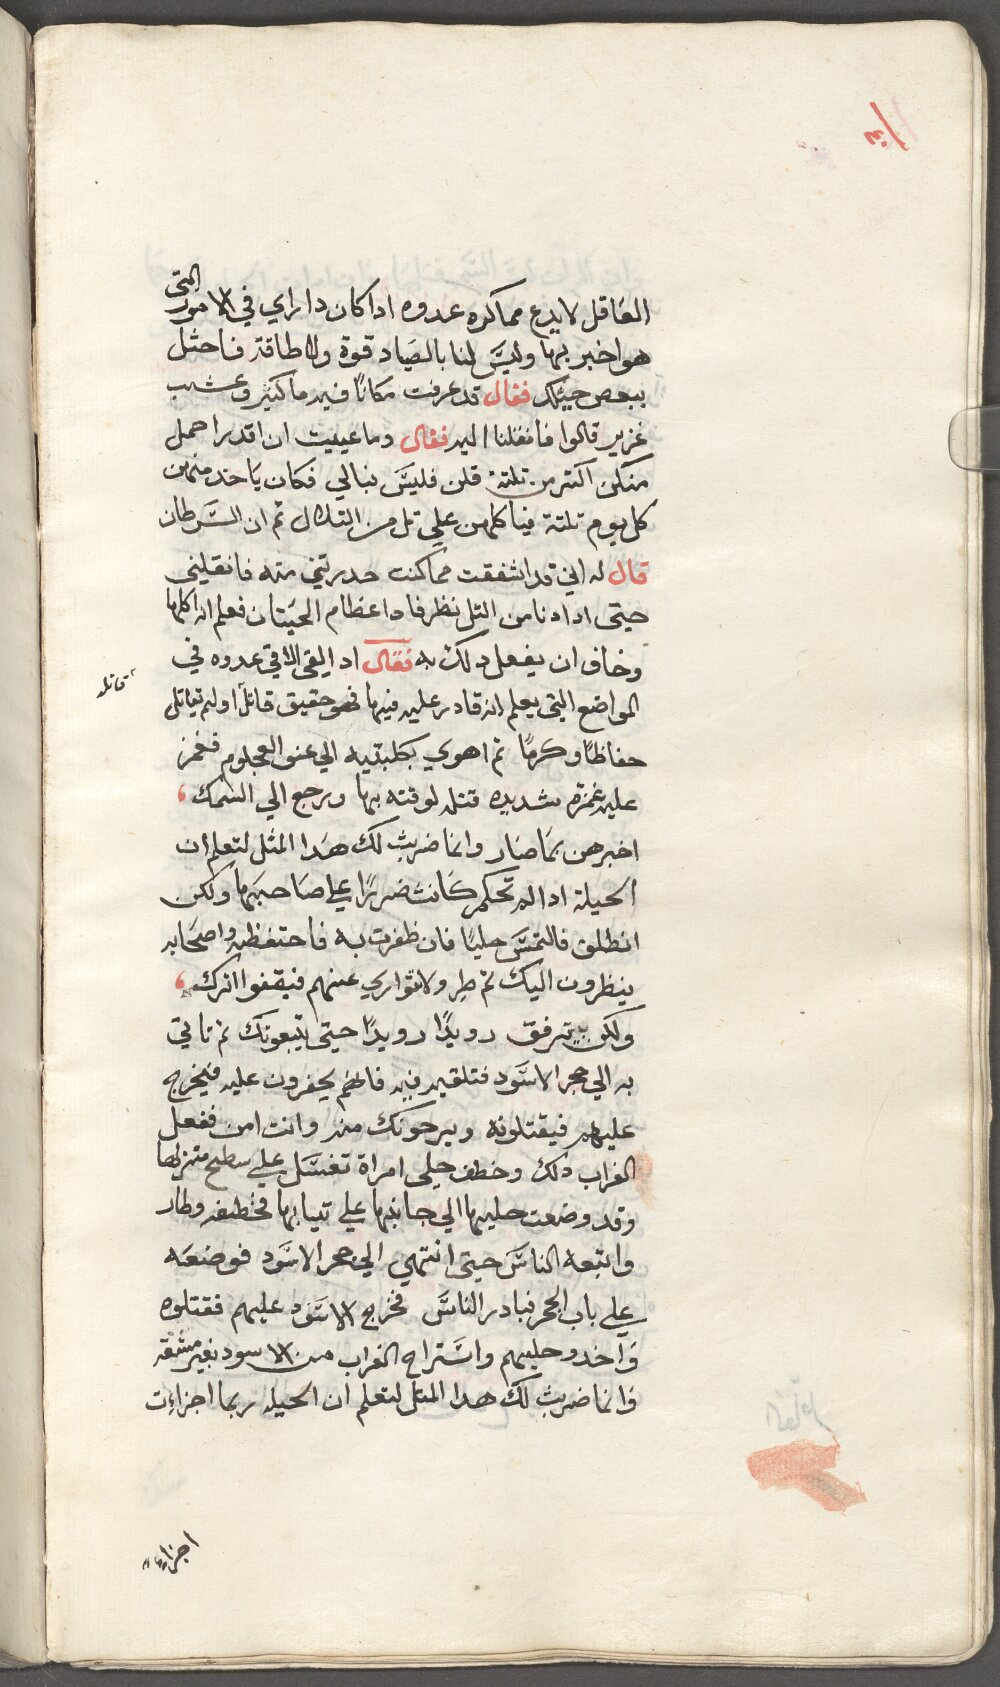 العاقل لا يدع مماكره عدوه ادا كان دا راي في الامور التي
هو اخبر بها وليس لنا بالصياد قوة ولا طاقة فاحتل
ببعض حيلك فقال قد عرفت مكانًا فيه ما كثير وعشب
غزير قالوا فانقلنا اليه فقال وما عييت ان اقدر احمل
منكن اكتر من تلتة قلن فليس نبالي فكان ياخد منهن
كل يوم تلتة فياكلهن علي تل من التلال تم ان السرطان
قال له اني قد اشفقت مما كنت حدرتني منه فانقليني
حيتي ادا دنا من التل نظر فادا عظام الحيتان فعلم انه اكلها
وخاف ان يفعل دلك به فقال ادا لقي الاقي عدوه في
المواضع التي يعلم انه قادر عليه فيها فهو حقيق قاتلا او لم يقاتل
قاتله
حفاظًا وكرمًا تم اهوي بكلبتيه الي عنق العجلوم فغمز
عليه غمزه شديده قتله لوقته بها ورجع الي السمك
اخبرهن بما صار وانما ضربت لك هدا المتل لتعلم ان
الحيلة ادا لم تحكم كانت ضررًا علي صاحبها ولكن
انطلق فالتمس حليًا فان ظفرت به فاحتفظه واصحابه
ينظرون اليك تم طر ولا تتواري عنهم فيقفوا اترك
ولكن يترفق رويدًا رويدًا حيتي يتبعونك تم تاتي
به الي جحر الاسود فتلقيه فيه فانهم يحفرون عليه فيخرج
عليهم فيقتلونه ويرحونك منه وانت امن ففعل
الغراب دلك وخطف حلي امراة تغسل علي سطح منزلها
وقد وضعت حليها الي جانبها علي تيابها فخطفه وطار
واتبعه الناس حيتي انتهي الي جحر الاسود فوضعه
علي باب الجحر فبادر الناس فخرج الاسود عليهم فقتلوه
واخدو حليهم واستراح الغراب من الاسود بغير مشقه
وانما ضربت لك هدا المتل لتعلم ان الحيله ربما اجزاءت